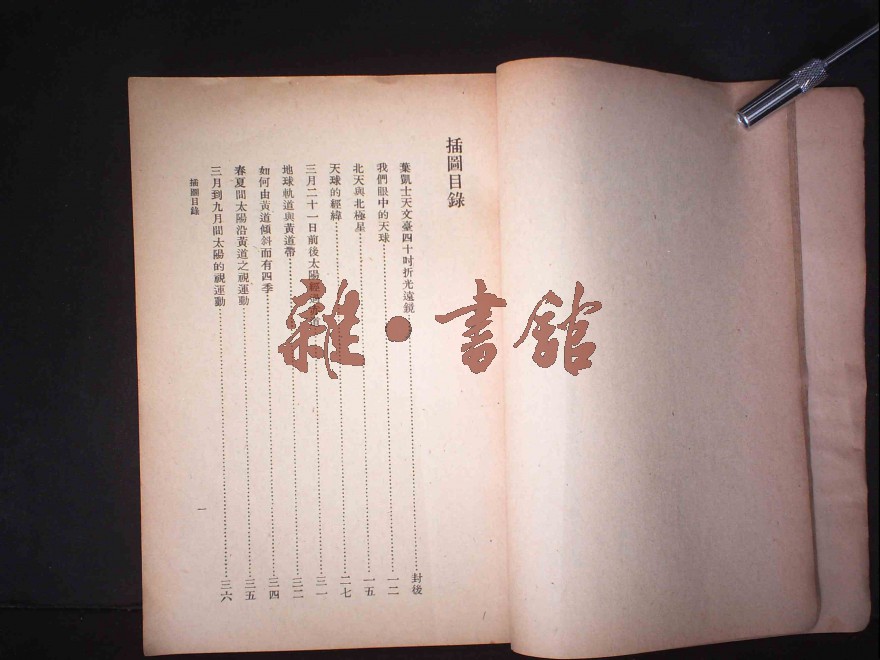 插圖目錄
葉凱士天文臺四十吋折光遠鏡……封後
我們眼中的天球……一二
北天與北極星……一五
天球的經緯……二七
三月二十一日前後太陽經過赤道……三一
地球軌道與黃道帶……三二
如何由黃道傾斜而有四季……三四
春夏間太陽沿黃道之視運動……三五
三月到九月間太陽的視運動……三六
插圖目錄
一
雜·書館